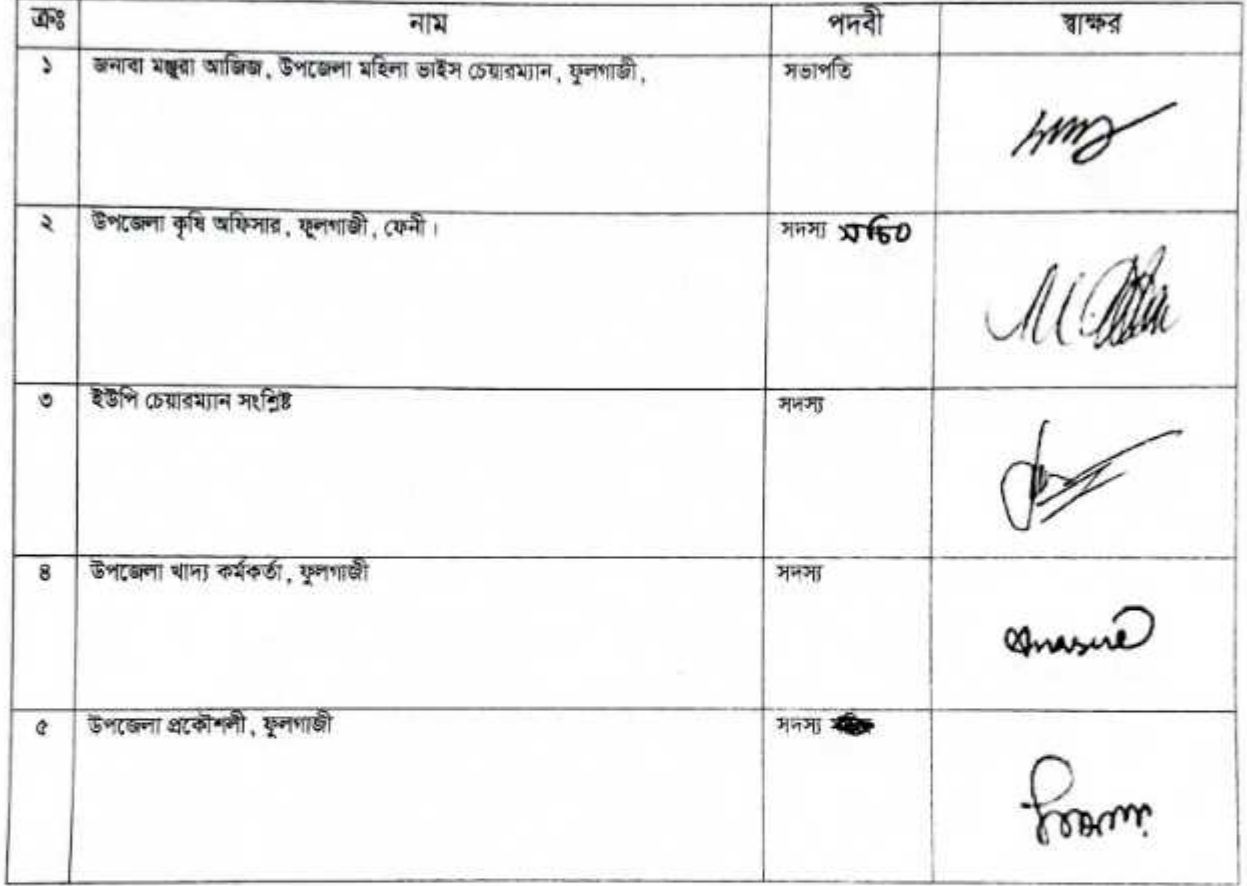 ক্রঃ নাম পদবী স্বাক্ষর
১ জনাবা মঞ্জুরা আজিজ, উপজেলা মহিলা ভাইস চেয়ারম্যান, ফুলগাজী, সভাপতি
২ উপজেলা কৃষি অফিসার, ফুলগাজী, ফেনী। সদস্য সচিব
৩ ইউপি চেয়ারম্যান সংশ্লিষ্ট সদস্য
৪ উপজেলা খাদ্য কর্মকর্তা, ফুলগাজী সদস্য
৫ উপজেলা প্রকৌশলী, ফুলগাজী সদস্য